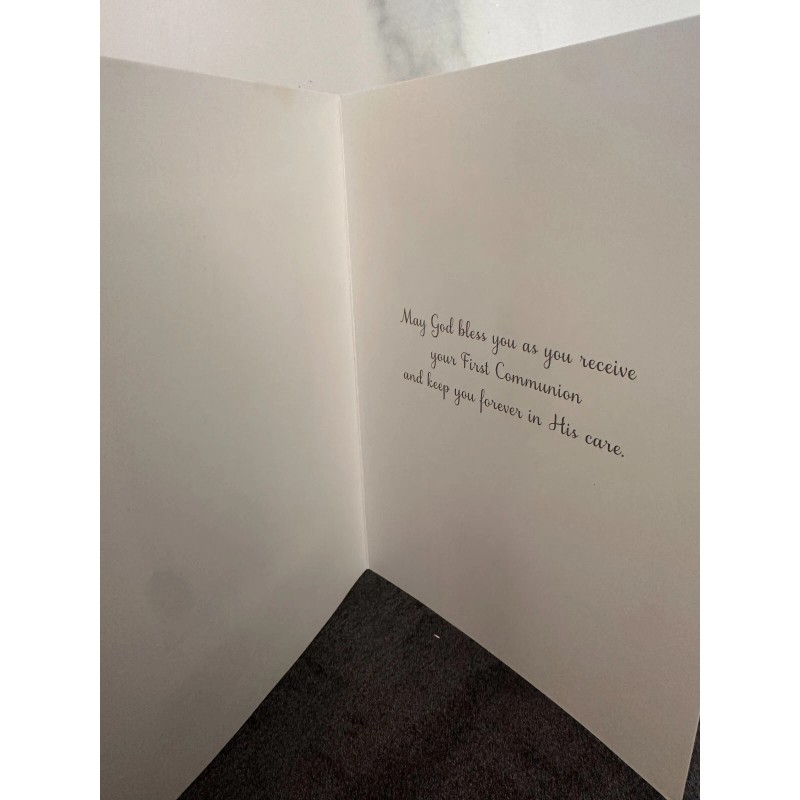 May God bless you as you receive
your First Communion
and keep you forever in His care.